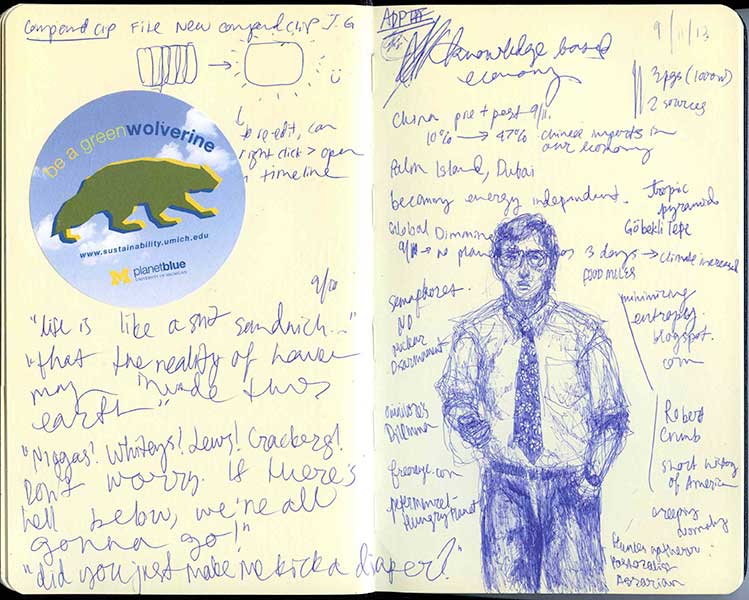 Compound Clip File New compound clip J.G
to re-edit, can
right click > open
in timeline
be a greenwolverine
www.sustainability.umich.edu
M planetblue
UNIVERSITY OF MICHIGAN
9/10
"life is like a shit sandwich..."
"that the reality of heaven
may invade this
earth"
"Niggas! Whiteys! Jews! Crackers!
Don't worry. If there's
hell below, we're all
gonna go!"
"did you just make me kick a diaper?"
9/11/13
knowledge based
economy
3 pgs (1000w)
2 sources
China pre + post 9/11.
10% → 47% chinese imports in
our economy
Palm Island, Dubai
becoming energy independent.
tropic
pyramid
Göbekli Tepe
Global Dimming
9/11 → no planes 3 days → climate increased
food miles
semaphores.
NO
nuclear
Disarmament
minimizing
entropy.
blogspot.
com
omnivore's
Dilemma
Robert
Crumb
short history
of America
freeneye.com
Peter menzel -
Hungry Planet
creeping
normalcy
Hunter gatherer
Pastoralist
Agrarian